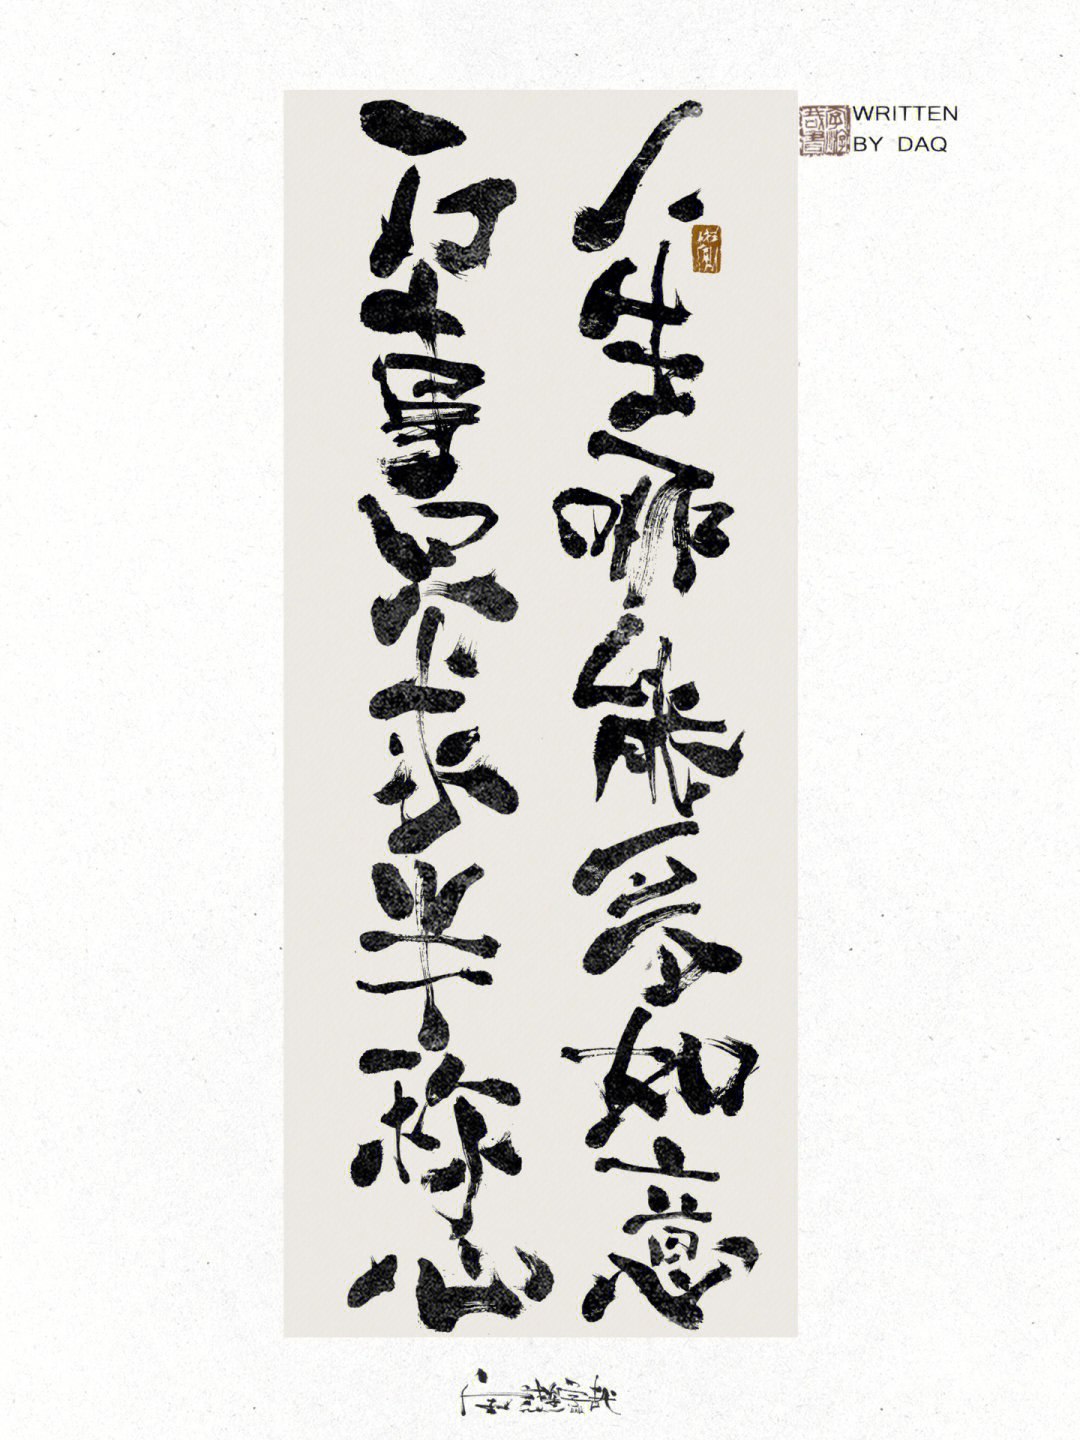 人生哪能多如意
万事只求半称心
WRITTEN
BY DAQ